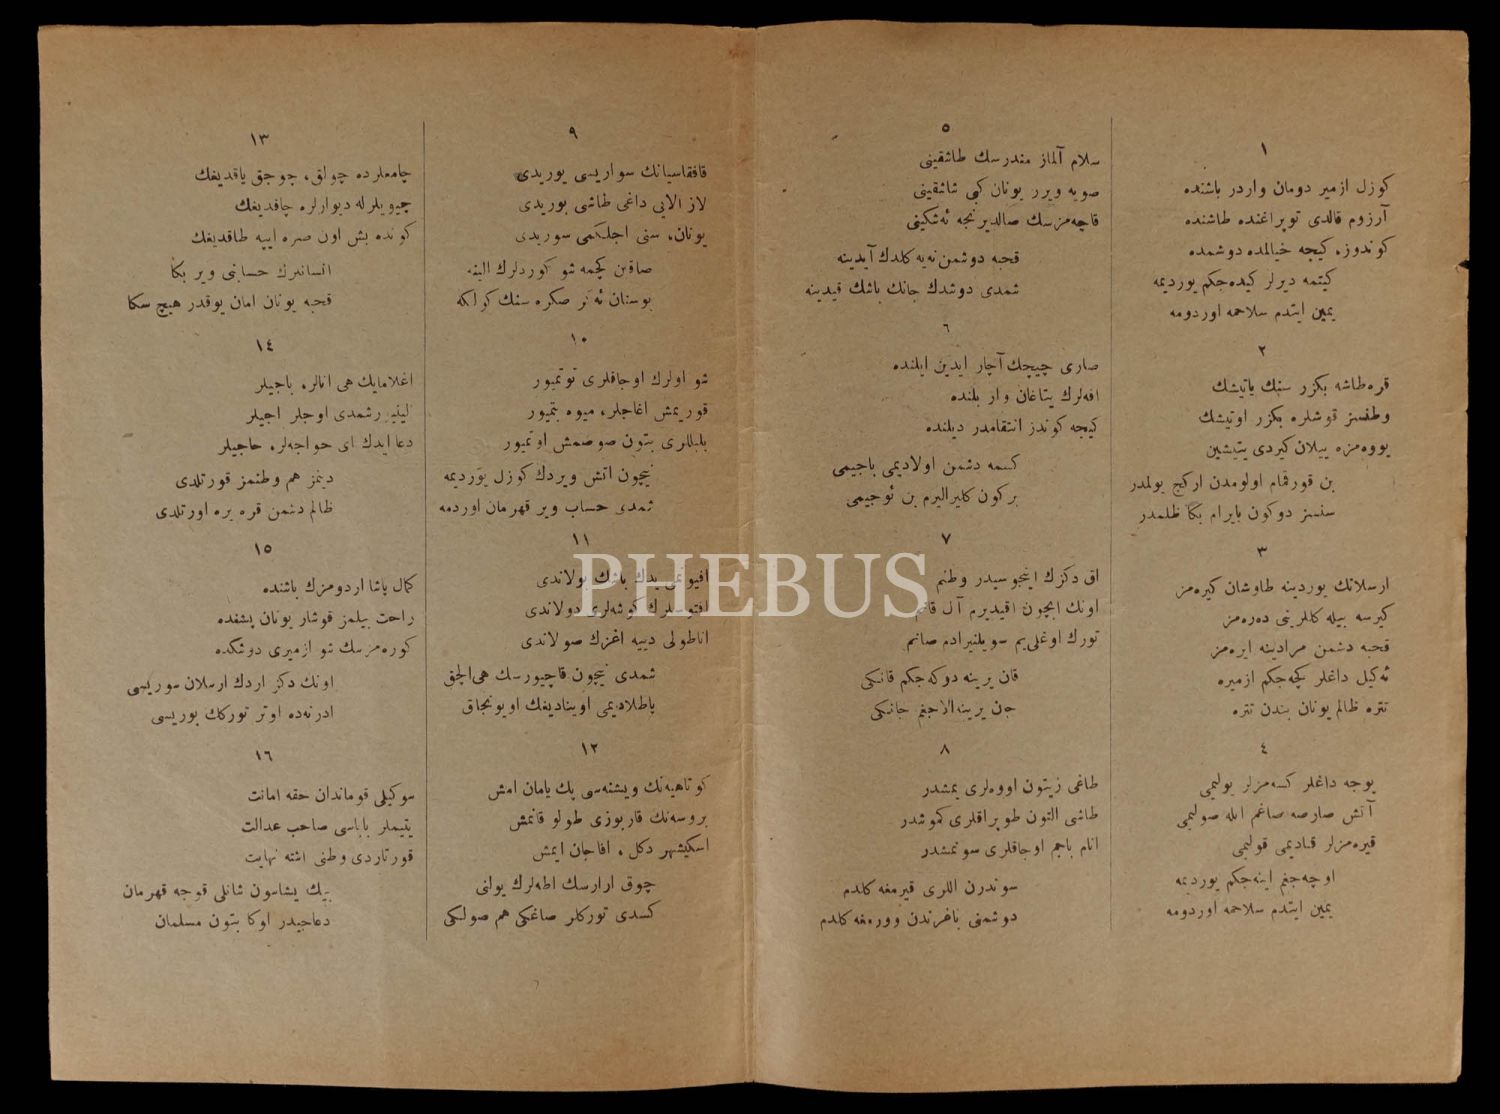 ١
كوزل ازمير دومان واردر باشنده
آرزوم قالدى توپراغنده طاشنده
كوندوز، كيجه خيالمده دوشمده
كيتمه ديرلر كيده‌جكم يورديمه
يمين ايتدم سلاحمه اوردومه
٢
قره‌طاشه بكزر سنك ياتيشك
وطنسز قوشلره بكزر اوتيشك
يووه‌مزه ييلان كيردى يتيشين
بن قورقمام اولومدن اركج يولمدر
سنسز دوكون بايرام بكا ظلمدر
٣
ارسلانك يوردينه طاوشان كيره‌مز
كيرسه بيله كللرينى ده‌ره‌مز
قحبه دشمن مرادينه ايره‌مز
ئه‌كيل داغلر كچه‌جكم ازميره
تتره ظالم يونان بندن تتره
٤
يوجه داغلر كسه‌مزلر يوليمى
آتش صارصه صاغم ايله صوليمى
قيره‌مزلر قناديمى قوليمى
اوچه‌جغم اينه‌جكم يورديمه
يمين ايتدم سلاحمه اوردومه
٥
سلام آلماز مندرسك طاشقينى
صوپه ويرر يونان كبى شاشقينى
قاچه‌مزسك صالديرنجه ئه‌شكينى
قحبه دوشمن نه‌يه كلدك آيدينه
شمدى دوشدك جانك باشك قيدينه
٦
صارى چيچك آچار ايدين ايلنده
افه‌لرك يتاغان وار بلنده
كيجه كوندز انتقامدر ديلنده
كسمه دشمن اولاديمى باجيمى
بركون كليرآليرم بن ئوجيمى
٧
اق دكزك اينجوسيدر وطنم
اونك ايچون اقيديرم آل قانم
تورك اوغلى‌يم سويلنيرادم صانم
قان يرينه دوكه‌جكم قانكى
جان يرينه آلاجغم جانكى
٨
طاغى زيتون اووه‌لرى يمشدر
طاشى التون طوپراقلرى كموشدر
انام باجم اوجاقلرى سونمشدر
سوندرن اللرى قيرمغه كلدم
دوشمنى باغرندن وورمغه كلدم
٩
قافقاسيانك سواريسى يوريدى
لاز الايى داغى طاشى بوريدى
يونان، سنى اجلكمى سوريدى
صاقين كچمه شو كوردلرك الينه
بوستان ئه‌كر صكره سنك كولكه
١٠
شو اولرك اوجاقلرى توتميور
قوريمش اغاجلر، ميوه بتميور
بلبللرى بتون صوصمش اوتميور
نيچون اتش ويردك كوزل يورديمه
شمدى حساب وير قهرمان اوردمه
١١
افيونمى يدك باشك بولاندى
افتوسلرك كوشه‌لرى دولاندى
اناطولى دييه اغزك صولاندى
شمدى نيچون قاچيورسك هى‌آلچق
پاطلاديمى اويناديغك اويونجاق
١٢
كوتاهيه‌نك ويشنه‌سى پك يامان امش
بروسه‌نك قارپوزى طولو قانمش
اسكيشهر دكل، افاجان ايمش
چوق ارارسك اطه‌لرك يولنى
كسدى توركلر صاغكى هم صولكى
١٣
جامعلرده چولق، چوجق ياقديغك
چيويلرله ديوارلره چاقديغك
كونده بش اون صره ايپه طاقديغك
انسانلرك حسابنى وير بكا
قحبه يونان امان يوقدر هيچ سكا
١٤
اغلامايك هى انالر، باجيلر
رشمدى اوجلر اجيلر
دعا ايدك اى خواجه‌لر، حاجيلر
دينمز هم وطنمز قورتلدى
ظالم دشمن قره يره اورتلدى
١٥
كمال پاشا اردومزك باشنده
راحت بيلمز قوشار يونان پشنده
كوره‌مزسك شو ازميرى دوشكده
اونك دكز اردك ارسلان سوريسى
ادرنه‌ده اوتر توركك بوريسى
١٦
سوكيلى قوماندان حقه امانت
يتيملر باباسى صاحب عدالت
قورتاردى وطنى اشته نهايت
بيك يشاسون شانلى قوجه قهرمان
دعاجيدر اوكا بتون مسلمان
PHEBUS